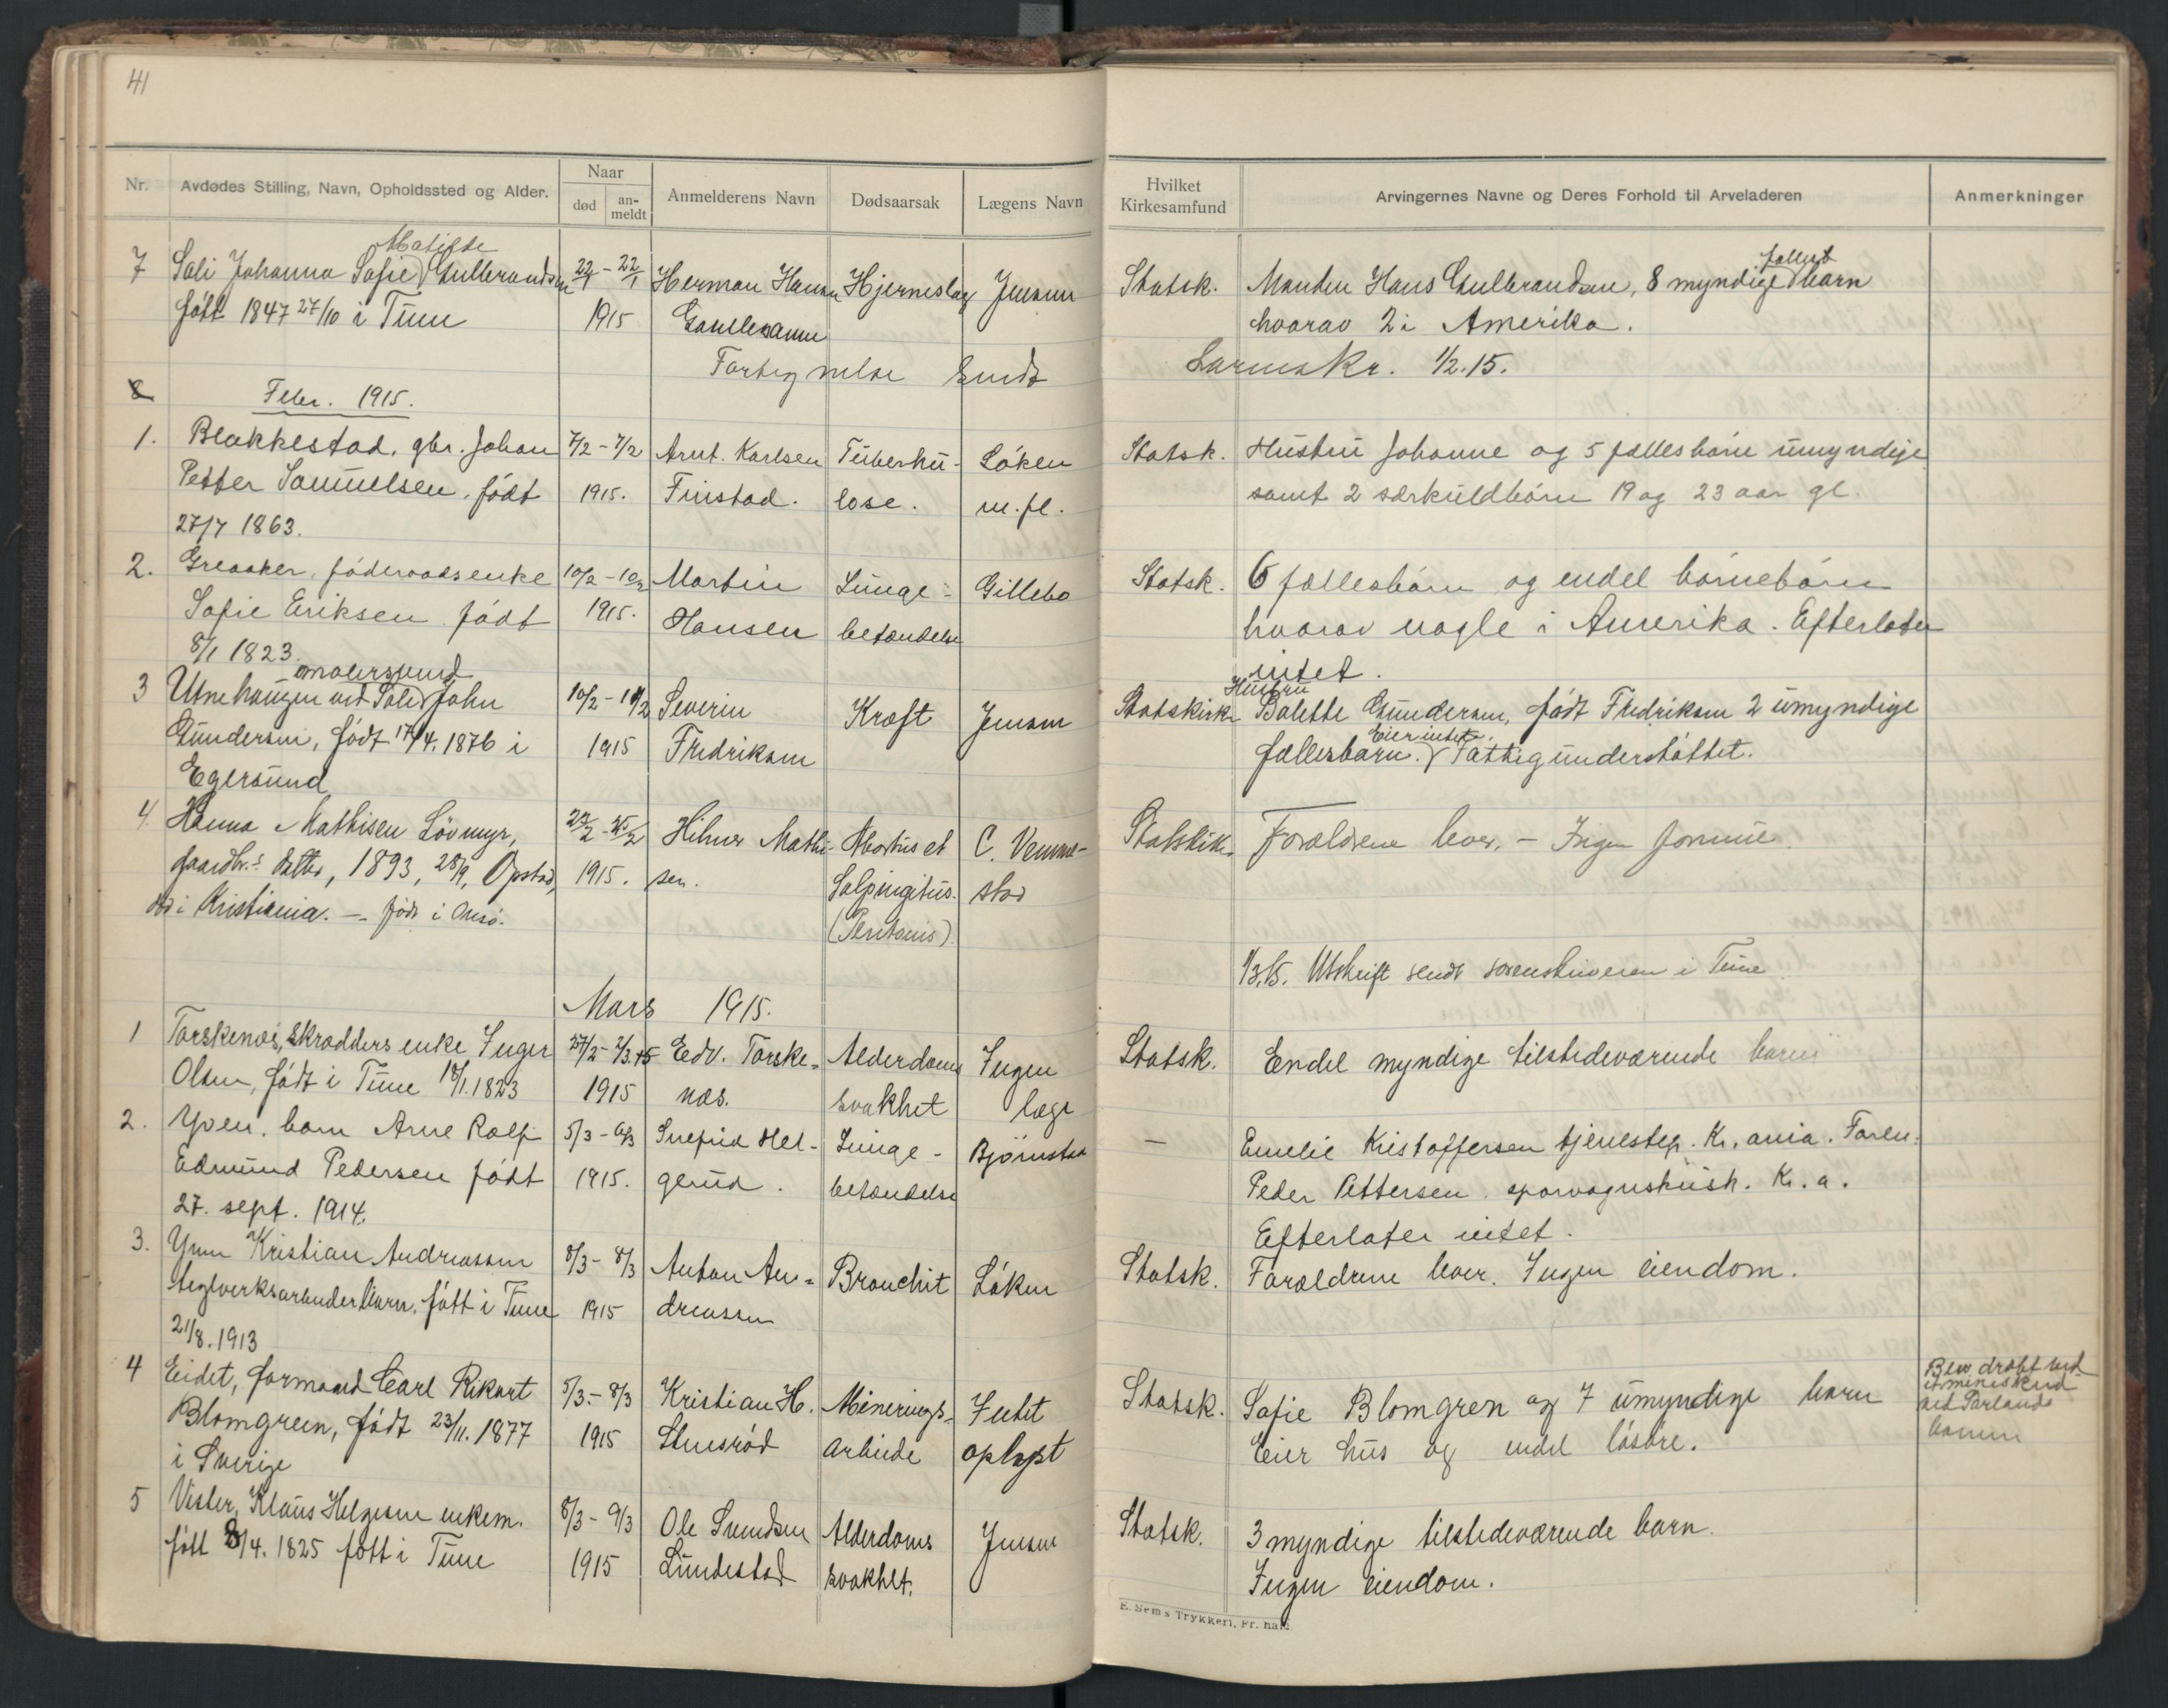 41
Nr.
Avdødes Stilling, Navn, Opholdssted og Alder.
Naar
død
an-
meldt
Anmelderens Navn
Dødsaarsak
Lægens Navn
Hvilket
Kirkesamfund
Arvingernes Navne og Deres Forhold til Arveladeren
Anmerkninger
Matilde
7 Sali Johanna Sofie Gullerandsen 22/1 - 22/1 Herman Hansen Hjerneslag Jensen Statsk.
fælles
Manden Hans Gulbrandsen, 8 myndige barn
født 1847 27/10 i Tune 1915
hvorav 2 i Amerika.
Fortegnelse sendt Sorenskr. 1/2.15.
8
Febr. 1915.
1. Blakkestad, gbr. Johan 7/2 - 7/2 Arnt. Karlsen Tuberku- Løken Statsk. Hustru Johanne og 5 fællesbörn umyndige
Petter Samuelsen, født 1915. Finstad. lose. m.fl. samt 2 særkuldbörn 19 og 23 aar gl.
27/7 1863.
2. Greaaker, föderaadsenke 10/2 - 10/2 Martin Lunge- Gillebo Statsk. 6 fællesbörn og endel börnebörn
Sofie Eriksen født 1915. Hansen betændelse hvorav nogle i Amerika. Efterlater
8/1 1823. intet.
3 Utnehaugen ved Soli John 10/2 - 11/2 Severin Kræft Jensen Statskirk.
Hustru
Balette Gundersen, født Fredriksen 2 umyndige
Gundersen, født 17/4. 1876 i 1915 Fredriksen
Eier intet.
fællesbarn. Fattigunderstøttet.
Egersund
4. Hanna Mathisen Lövmyr, 22/2 - 25/2 Hilmar Mathi- Abortus et C. Vemme- Statskik. Forældrene lever. - Ingen formue.
gaardbr.s datter, 1893, 28/9, Opstad, 1915. sen. Salpingitus. stad
død i Kristiania. - född i Onsö. (Peritonis)
1/3.15. Utskrift sendt sorenskriveren i Tune
Mars 1915.
1 Torskenæs, skrædders enke Inger 27/2 - 2/3.15 Edv. Torske- Alderdoms Ingen Statsk. Endel myndige tilstedeværende barn
Olsen, født i Tune 18/1.1823 1915 næs. svakhet læge
2. Yven, barn Arne Rolf 5/3 - 6/3 Snefrid Hel- Lunge- Björnstad - Emelie Kristoffersen tjenestep. Kr.ania. Faren:
Edmund Pedersen født 1915. gerud. betændelse Peder Pettersen sporvognskusk. Kr.a.
27. sept. 1914. Efterlater intet.
3. Yven Kristian Andreassen 8/3 - 8/3 Anton An- Bronchit Løken Statsk. Forældrene lever. Ingen eiendom.
teglverksarbeider barn, født i Tune 1915 dreassen
21/8. 1913
4 Eidet, formand Carl Rikart 5/3 - 8/3 Kristian H. Minerings- Intet Statsk. Sofie Blomgren og 7 umyndige barn
Blomgreen, født 23/11. 1877 1915 Stensrød arbeide oplyst Eier hus og endel løsøre.
i Sverige
Blev dræbt ved
et mineskud
ved
banen
5 Vister, Klaus Helgesen enkem. 8/3 - 9/3 Ole Svendsen Alderdoms Jensen Statsk. 3 myndige tilstedeværende barn.
født 8/4. 1825 født i Tune 1915 Lundestad svakhet. Ingen eiendom.
E. Sem's Trykkeri, Fr. hald